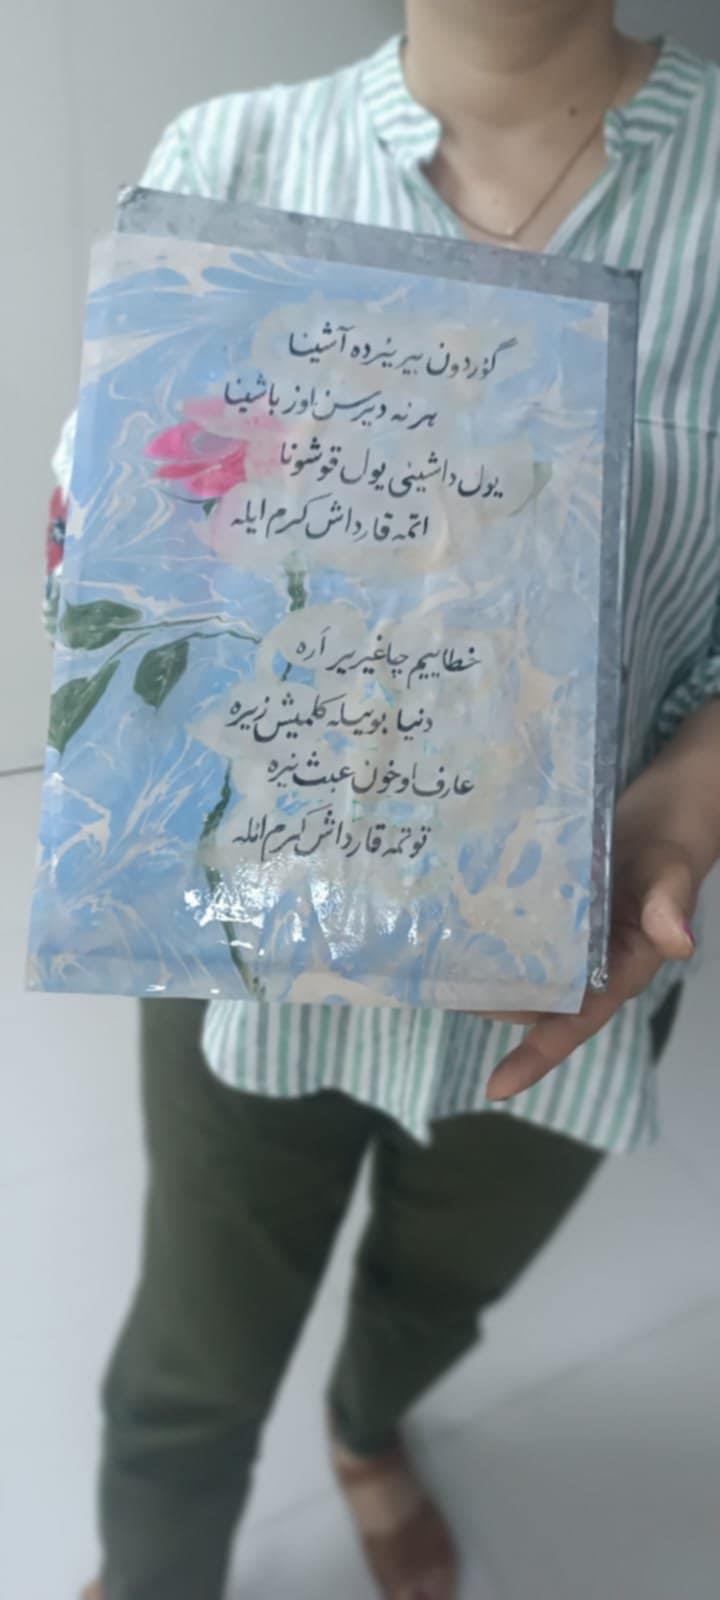 گؤردون بیر یئرده آشینا
هر نه دیرسن اوز باشینا
یول داشینی یول قوشونا
اتمه قارداش کرم ایله
خطاییم چاغیریر اَره
دنیا بوییله گلمیش زیره
عارف اوخون عبث یئره
توتمه قارداش کرم ائله